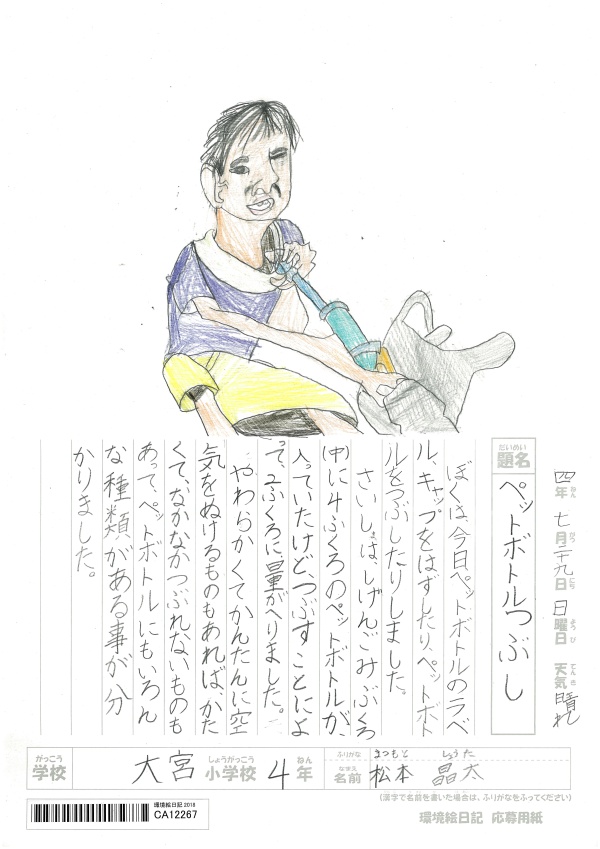 四年 七月二十九日 日曜日 天気 晴れ
ねん がつ にち ようび てんき
だいめい
題名
ペットボトルつぶし
ぼくは、今日ペットボトルのラベ
ル、キャップをはずしたり、ペットボト
ルをつぶしたりしました。
さいしょは、しげんごみぶくろ
(中)に4ふくろのペットボトルが、
入っていたけど、つぶすことによ
って、2ふくろに、量がへりました。
やわらかくてかんたんに空
気をぬけるものもあれば、かた
くて、なかなかつぶれないものも
あって、ペットボトルにもいろん
な種類がある事が分
かりました。
がっこう
学校
大宮
しょうがっこう
小学校
4
ねん
年
ふりがな
まつもと しょうた
なまえ
名前
松本 晶太
(漢字で名前を書いた場合は、ふりがなをふってください)
環境絵日記 2018
CA12267
環境絵日記 応募用紙